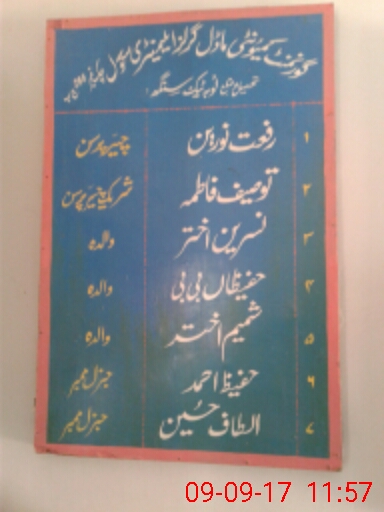 گورنمنٹ کمیونٹی ماڈل گرلز ایلیمنٹری سکول
تحصیل و ضلع ٹوبہ ٹیک سنگھ
۱ رفعت نورین چیئرپرسن
۲ توصیف فاطمہ شریک چیئرپرسن
۳ نسرین اختر والدہ
۴ حفیظاں بی بی والدہ
۵ شمیم اختر والدہ
۶ حفیظ احمد جنرل ممبر
۷ الطاف حسین جنرل ممبر
09-09-17 11:57